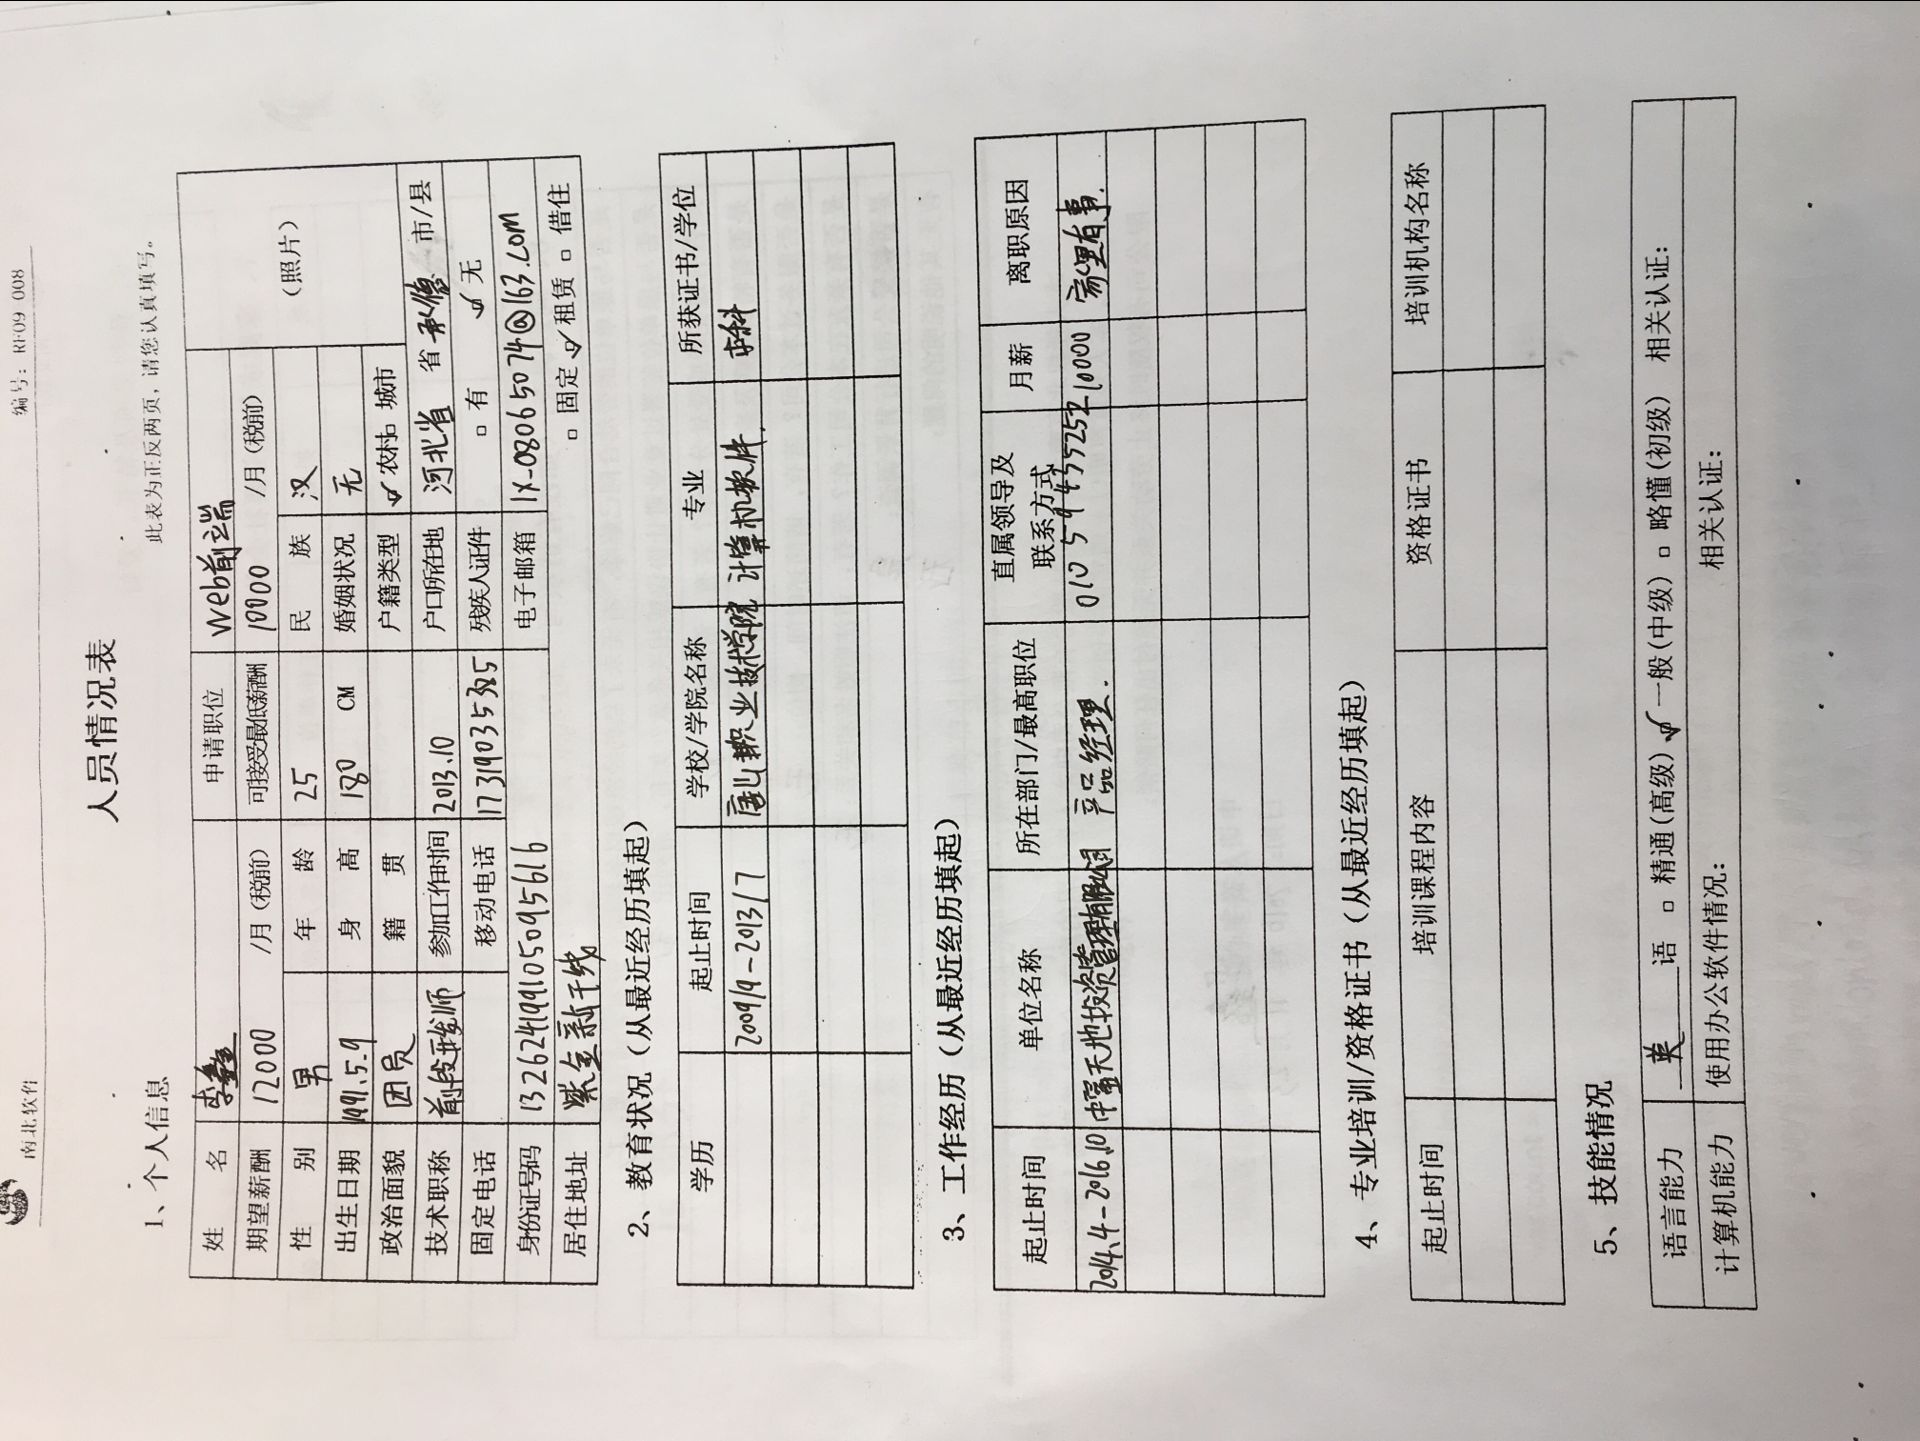 南北软件 编号：RF09 008
人员情况表
1、个人信息 此表为正反两页，请您认真填写。
姓 名 李鑫 申请职位 Web前端
期望薪酬 12000 /月（税前） 可接受最低薪酬 10000 /月（税前） （照片）
性 别 男 年 龄 25 民 族 汉
出生日期 1991.5.9 身 高 180 CM 婚姻状况 无
政治面貌 团员 籍 贯 户籍类型 ☑ 农村□ 城市
技术职称 前段开发师 参加工作时间 2013.10 户口所在地 河北省 省 承德 市/县
固定电话 移动电话 17319035325 残疾人证件 □ 有 ☑ 无
身份证号码 132624199105095616 电子邮箱 lx-08065074@163.com
居住地址 紫金新干线 □ 固定 ☑ 租赁 □ 借住
2、教育状况（从最近经历填起）
学历 起止时间 学校/学院名称 专业 所获证书/学位
2009/9-2013/7 唐山职业技术学院 计算机软件. 本科
3、工作经历（从最近经历填起）
起止时间 单位名称 所在部门/最高职位 直属领导及 月薪 离职原因
联系方式
2014.4-2016.10 中富天地投资管理有限公司 产品经理. 010 59435252 10000 家里有事.
4、专业培训/资格证书（从最近经历填起）
起止时间 培训课程内容 资格证书 培训机构名称
5、技能情况
语言能力 英 语 □ 精通(高级) ☑ 一般(中级) □ 略懂(初级) 相关认证：
计算机能力 使用办公软件情况： 相关认证：